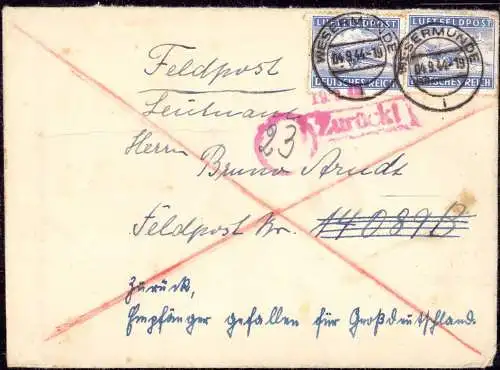 LUFTFELDPOST LUFTFELDPOST
DEUTSCHES REICH DEUTSCHES REICH
WESERMÜNDE WESERMÜNDE
04.9.44-19 04.9.44-19
i i
Feldpost
Leutnant
Zurück!
23
Herrn Bruno Arndt
Feldpost Nr. 14089B
Zurück,
Empfänger gefallen für Großdeutschland.